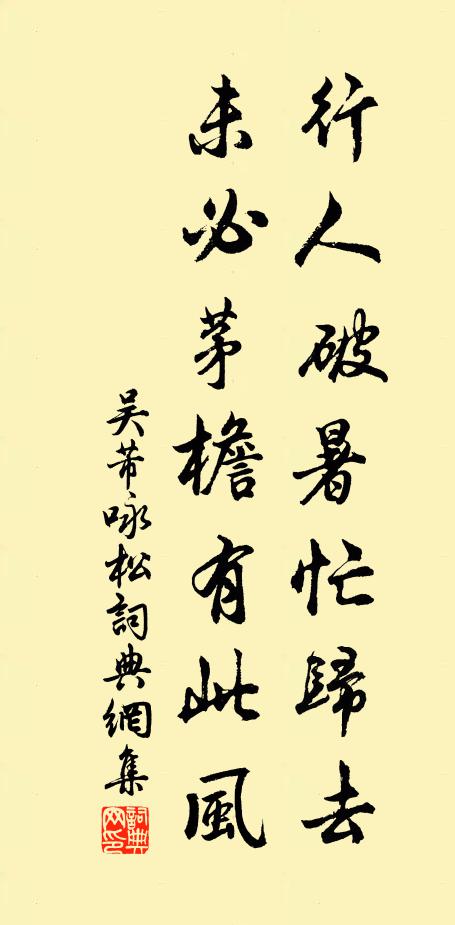 行人破暑忙歸去
未必茅檐有此風
吴芾咏松詞典網集
詞典网印